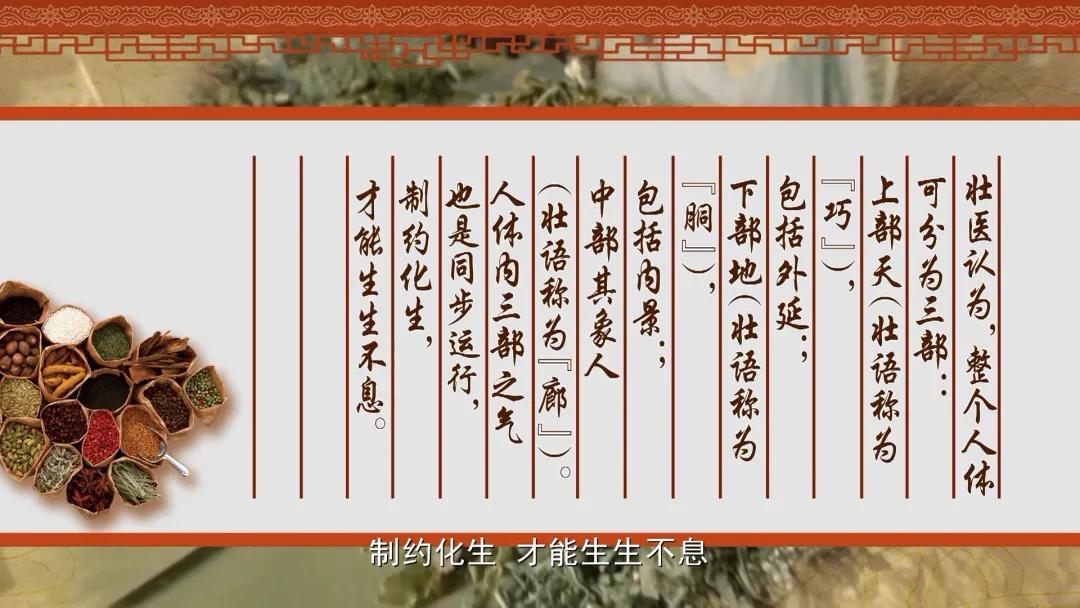 壮医认为，整个人体
可分为三部：
上部天（壮语称为
『巧』），
包括外延；
下部地（壮语称为
『胴』），
包括内景；
中部其象人
（壮语称为『廊』）。
人体内三部之气
也是同步运行，
制约化生，
才能生生不息。
制约化生 才能生生不息